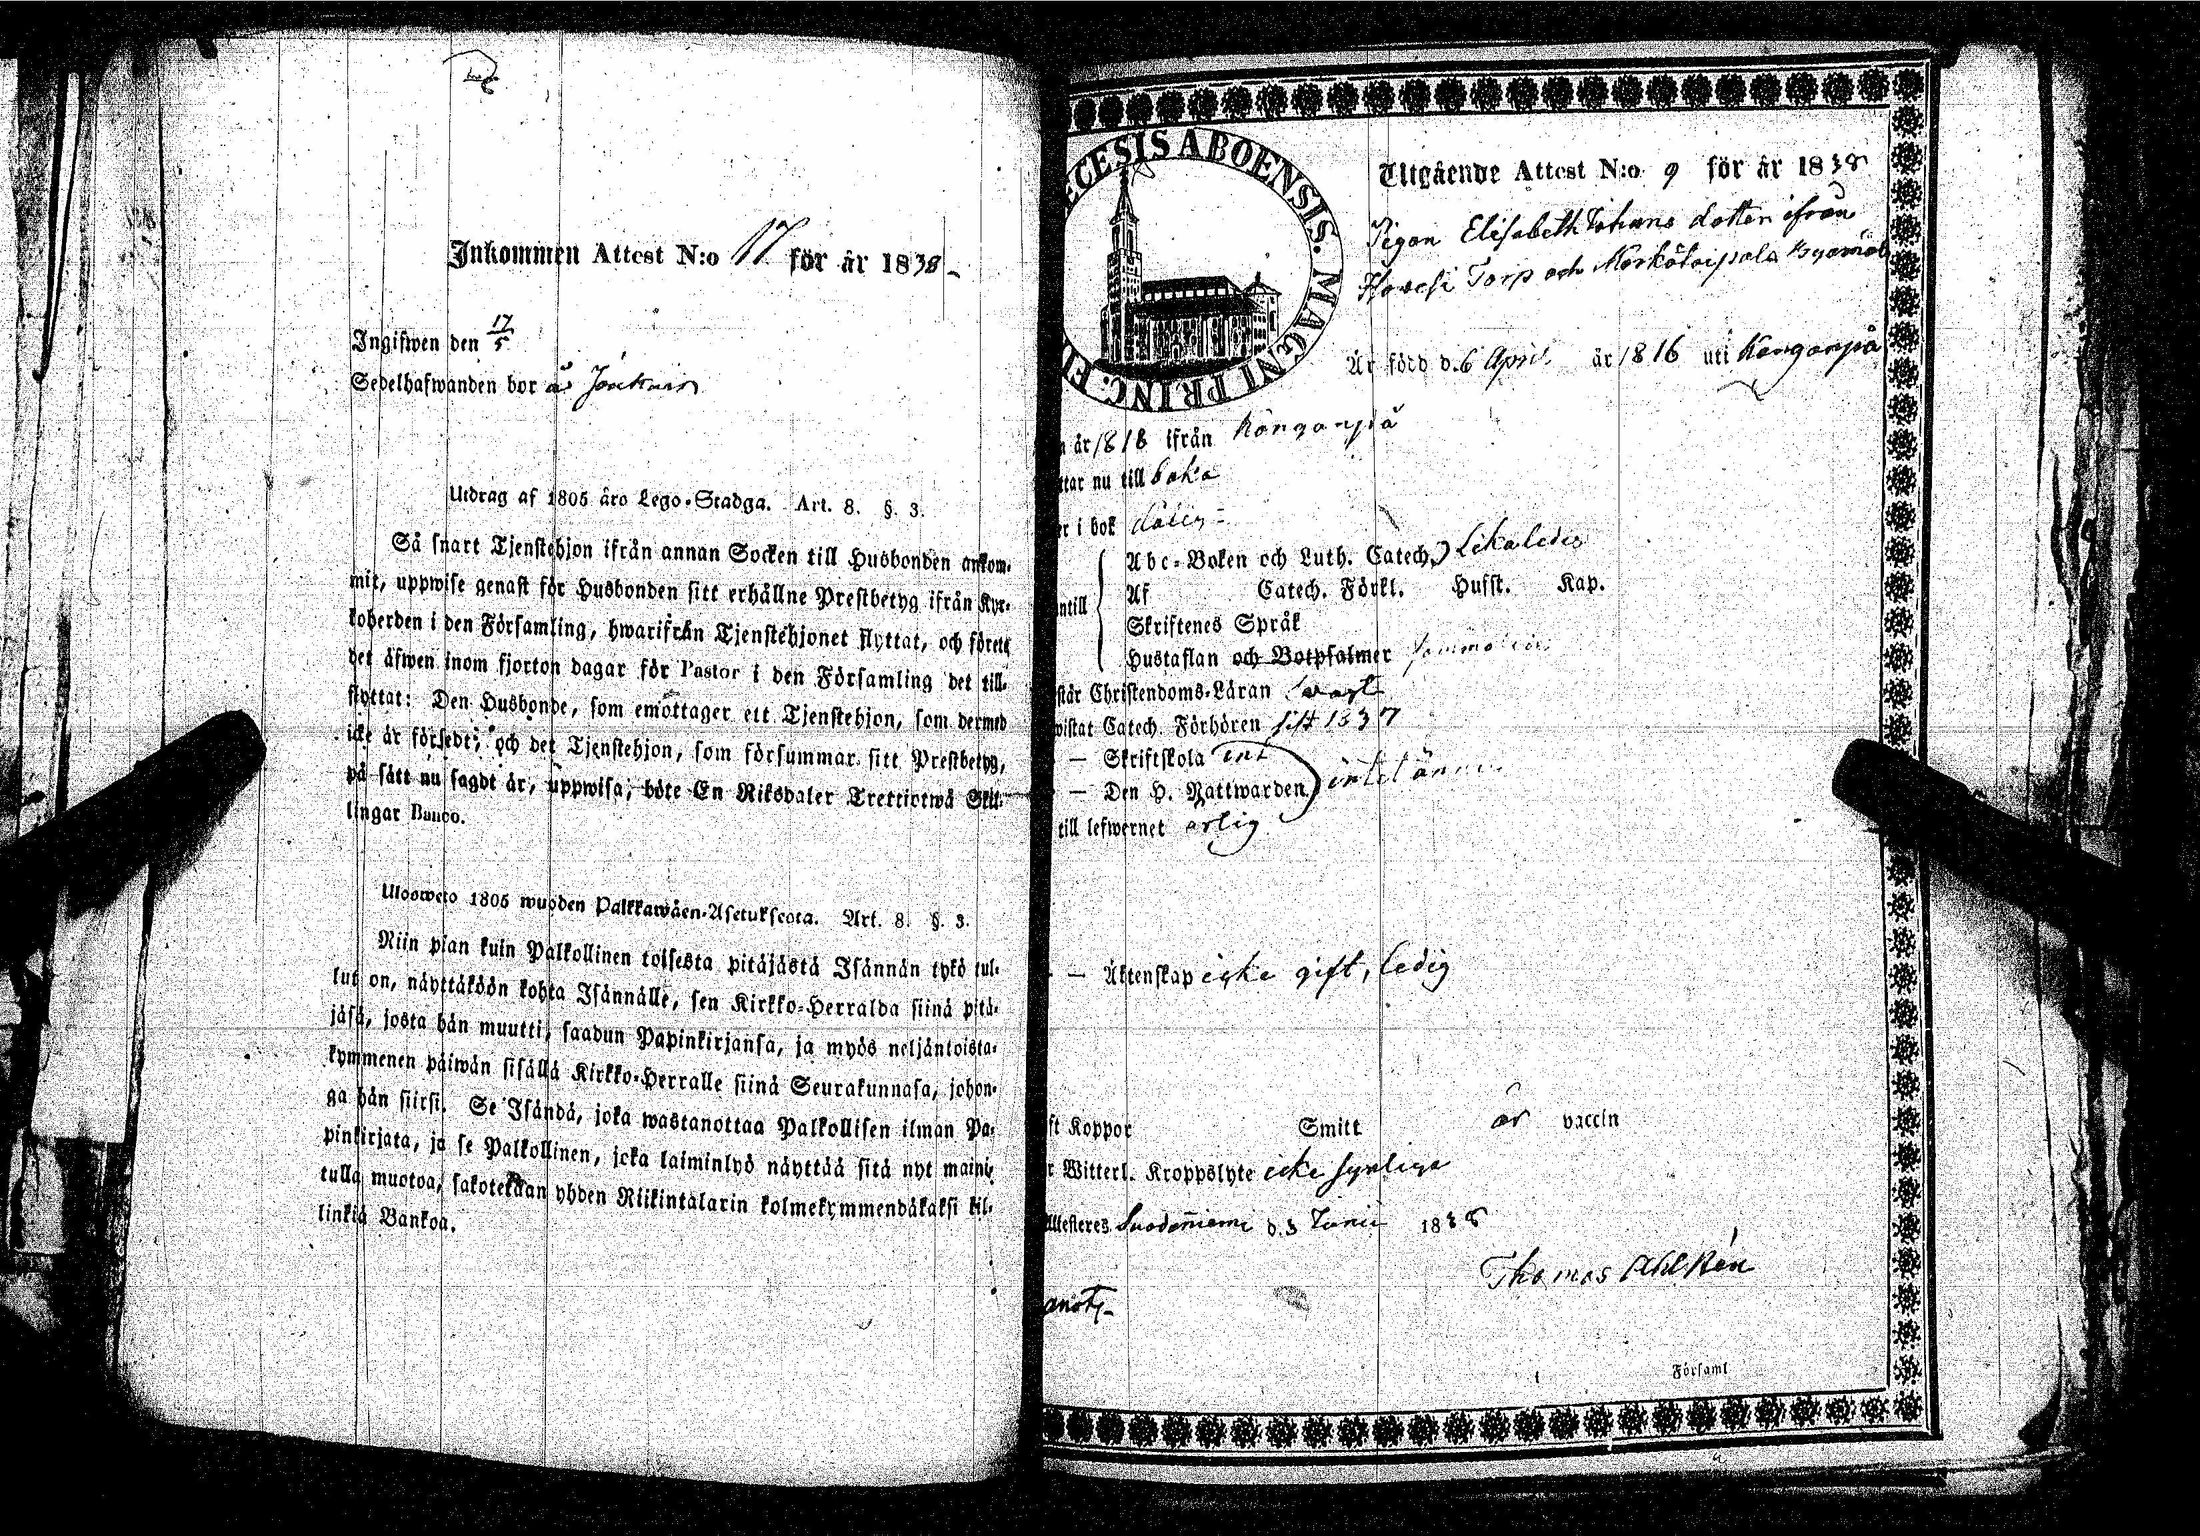 Inkommen Attest N:o 17 för år 1838
Ingifwen den 17/5
Sedelhafwanden bor å
Utdrag af 1805 års Lego-Stadga. Art. 8. §. 3.
Så snart Tjenstehjon ifrån annan Socken till Husbonden ankom-
mit, uppwise genast för Husbonden sitt erhållne Prestbetyg ifrån Kyr-
koherden i den Församling, hwarifrån Tjenstehjonet flyttat, och förete
det äfwen inom fjorton dagar för Pastor i den Församling det till-
flyttat: Den Husbonde, som emottager ett Tjenstehjon, som dermed
icke är försedt; och det Tjenstehjon, som försummar sitt Prestbetyg,
på sått nu sagdt är, uppwisa, böte En Riksdaler Trettiotwå Skil-
lingar Banco.
Ulosweto 1805 wuoden Palkkawäen-Asetuksesta. Art. 8. §. 3.
Niin pian kuin Palkollinen toisesta pitäjästä Isännän tykö tul-
lut on, näyttäköön kohta Isännälle, sen Kirkko-Herralda siinä pitä-
jäsä, josta hän muutti, saadun Papinkirjansa, ja myös neljäntoista-
kymmenen päiwän sisällä Kirkko-Herralle siinä Seurakunnasa, johon-
ga hän siirsi. Se Isändä, joka wastanottaa Palkollisen ilman Pa-
pinkirjata, ja se Palkollinen, joka laiminlyö näyttää sitä nyt maini-
tulla muotoa, sakotetaan yhden Riikintalarin kolmekymmendäkaksi kil-
linkiä Bankoa.
ECESIS ABOENSIS. MAGNI PRINC. FI
Utgående Attest N:o 9 för år 1838
Pigan Elisabeth Johans dotter ifrån
Torp och
Är född d. 6 April år 1816 uti Kanganpä
n år 1818 ifrån Kanganpä
ttar nu till baka
er i bok
Abc-Boken och Luth. Catech. Likaledes
Af Catech. Förkl. Husst. Kap.
ntill
Skriftenes Språk
Hustaflan och Botpsalmer
står Christendoms-Läran swagt
wistat Catech. Förhören sist 1837
— Skriftskola
— Den H. Nattwarden intet ännu
till lefwernet ärlig
— Äktenskap icke gift, ledig
ft Koppor Smitt är vaccin
r Witterl. Kroppslyte icke synliga
Attesteres Suodenniemi d. 3 Junii 1838
Thomas Ahlstén
Församl